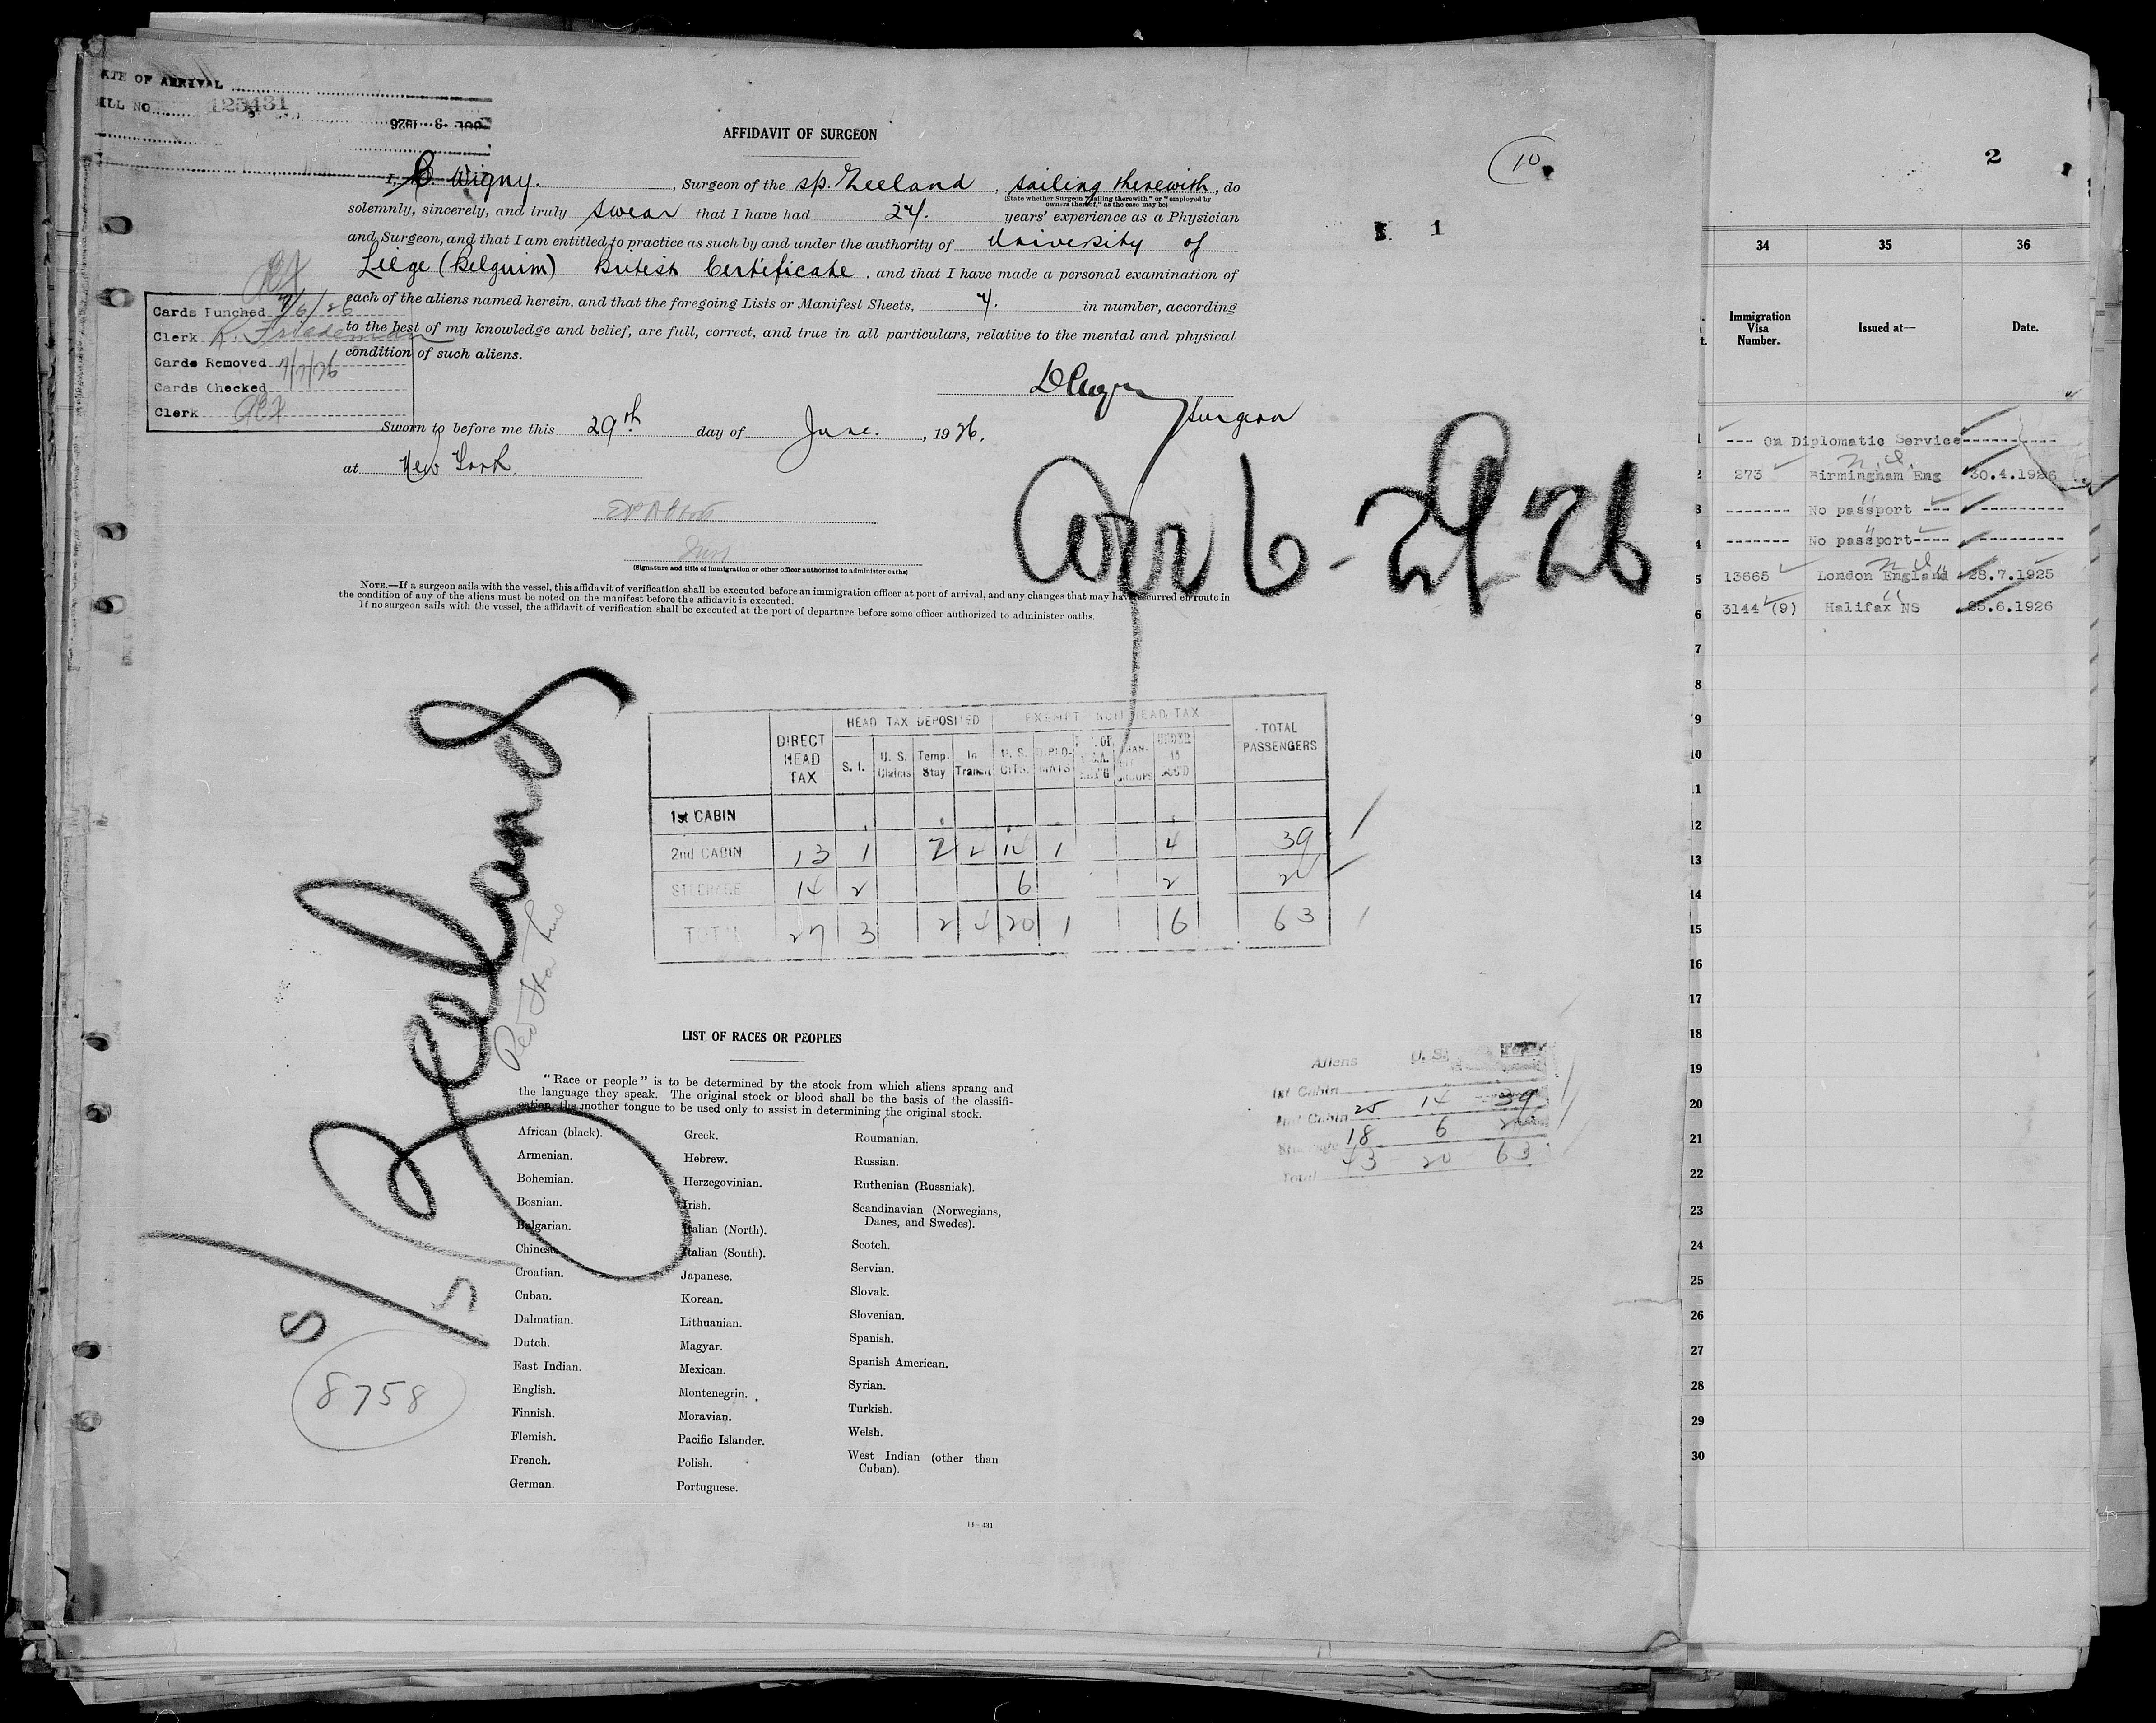 DATE OF ARRIVAL
BILL NO. 125431
AFFIDAVIT OF SURGEON
10
I, Wigny. , Surgeon of the sp. Zeeland , sailing therewith , do
(State whether Surgeon "sailing therewith" or "employed by
owners thereof," as the case may be)
solemnly, sincerely, and truly swear that I have had 24. years' experience as a Physician
and Surgeon, and that I am entitled to practice as such by and under the authority of University of
Liège (Belguim) British Certificate , and that I have made a personal examination of
each of the aliens named herein, and that the foregoing Lists or Manifest Sheets, 4. in number, according
to the best of my knowledge and belief, are full, correct, and true in all particulars, relative to the mental and physical
condition of such aliens.
1
Cards Punched 7/6/26
Clerk R. Friedeman
Cards Removed 7/7/26
Cards Checked
Clerk
Surgeon
Sworn to before me this 29th day of June. , 1926.
at New York.
Arr 6-29-26
(Signature and title of immigration or other officer authorized to administer oaths)
NOTE.—If a surgeon sails with the vessel, this affidavit of verification shall be executed before an immigration officer at port of arrival, and any changes that may have occurred en route in
the condition of any of the aliens must be noted on the manifest before the affidavit is executed.
If no surgeon sails with the vessel, the affidavit of verification shall be executed at the port of departure before some officer authorized to administer oaths.
S/S Zeeland
Red Star Line
8758
HEAD TAX DEPOSITED EXEMPT NON HEAD TAX
DIRECT HEAD TAX S. I. U. S. Claims Temp. Stay In Transit U. S. CITS. DIPLO-MATS UNDER 16 ACC'D TOTAL PASSENGERS
1st CABIN
2nd CABIN 13 1 2 4 14 1 4 39
STEERAGE 14 2 6 2 24
TOTAL 27 3 2 4 20 1 6 63
LIST OF RACES OR PEOPLES
"Race or people" is to be determined by the stock from which aliens sprang and
the language they speak. The original stock or blood shall be the basis of the classifi-
cation, the mother tongue to be used only to assist in determining the original stock.
African (black).
Armenian.
Bohemian.
Bosnian.
Bulgarian.
Chinese.
Croatian.
Cuban.
Dalmatian.
Dutch.
East Indian.
English.
Finnish.
Flemish.
French.
German.
Greek.
Hebrew.
Herzegovinian.
Irish.
Italian (North).
Italian (South).
Japanese.
Korean.
Lithuanian.
Magyar.
Mexican.
Montenegrin.
Moravian.
Pacific Islander.
Polish.
Portuguese.
Roumanian.
Russian.
Ruthenian (Russniak).
Scandinavian (Norwegians,
Danes, and Swedes).
Scotch.
Servian.
Slovak.
Slovenian.
Spanish.
Spanish American.
Syrian.
Turkish.
Welsh.
West Indian (other than
Cuban).
14—431
Aliens U. S. Total
1st Cabin
2nd Cabin 25 14 39
Steerage 18 6 24
Total 43 20 63
2
34 35 36
Immigration Visa Number. Issued at— Date.
1 --- On Diplomatic Service
2 273 Birmingham Eng 30.4.1926
3 ------- No passport ---
4 ------- No passport----
5 13665 London England 28.7.1925
6 3144 (9) Halifax NS 25.6.1926
7
8
9
10
11
12
13
14
15
16
17
18
19
20
21
22
23
24
25
26
27
28
29
30